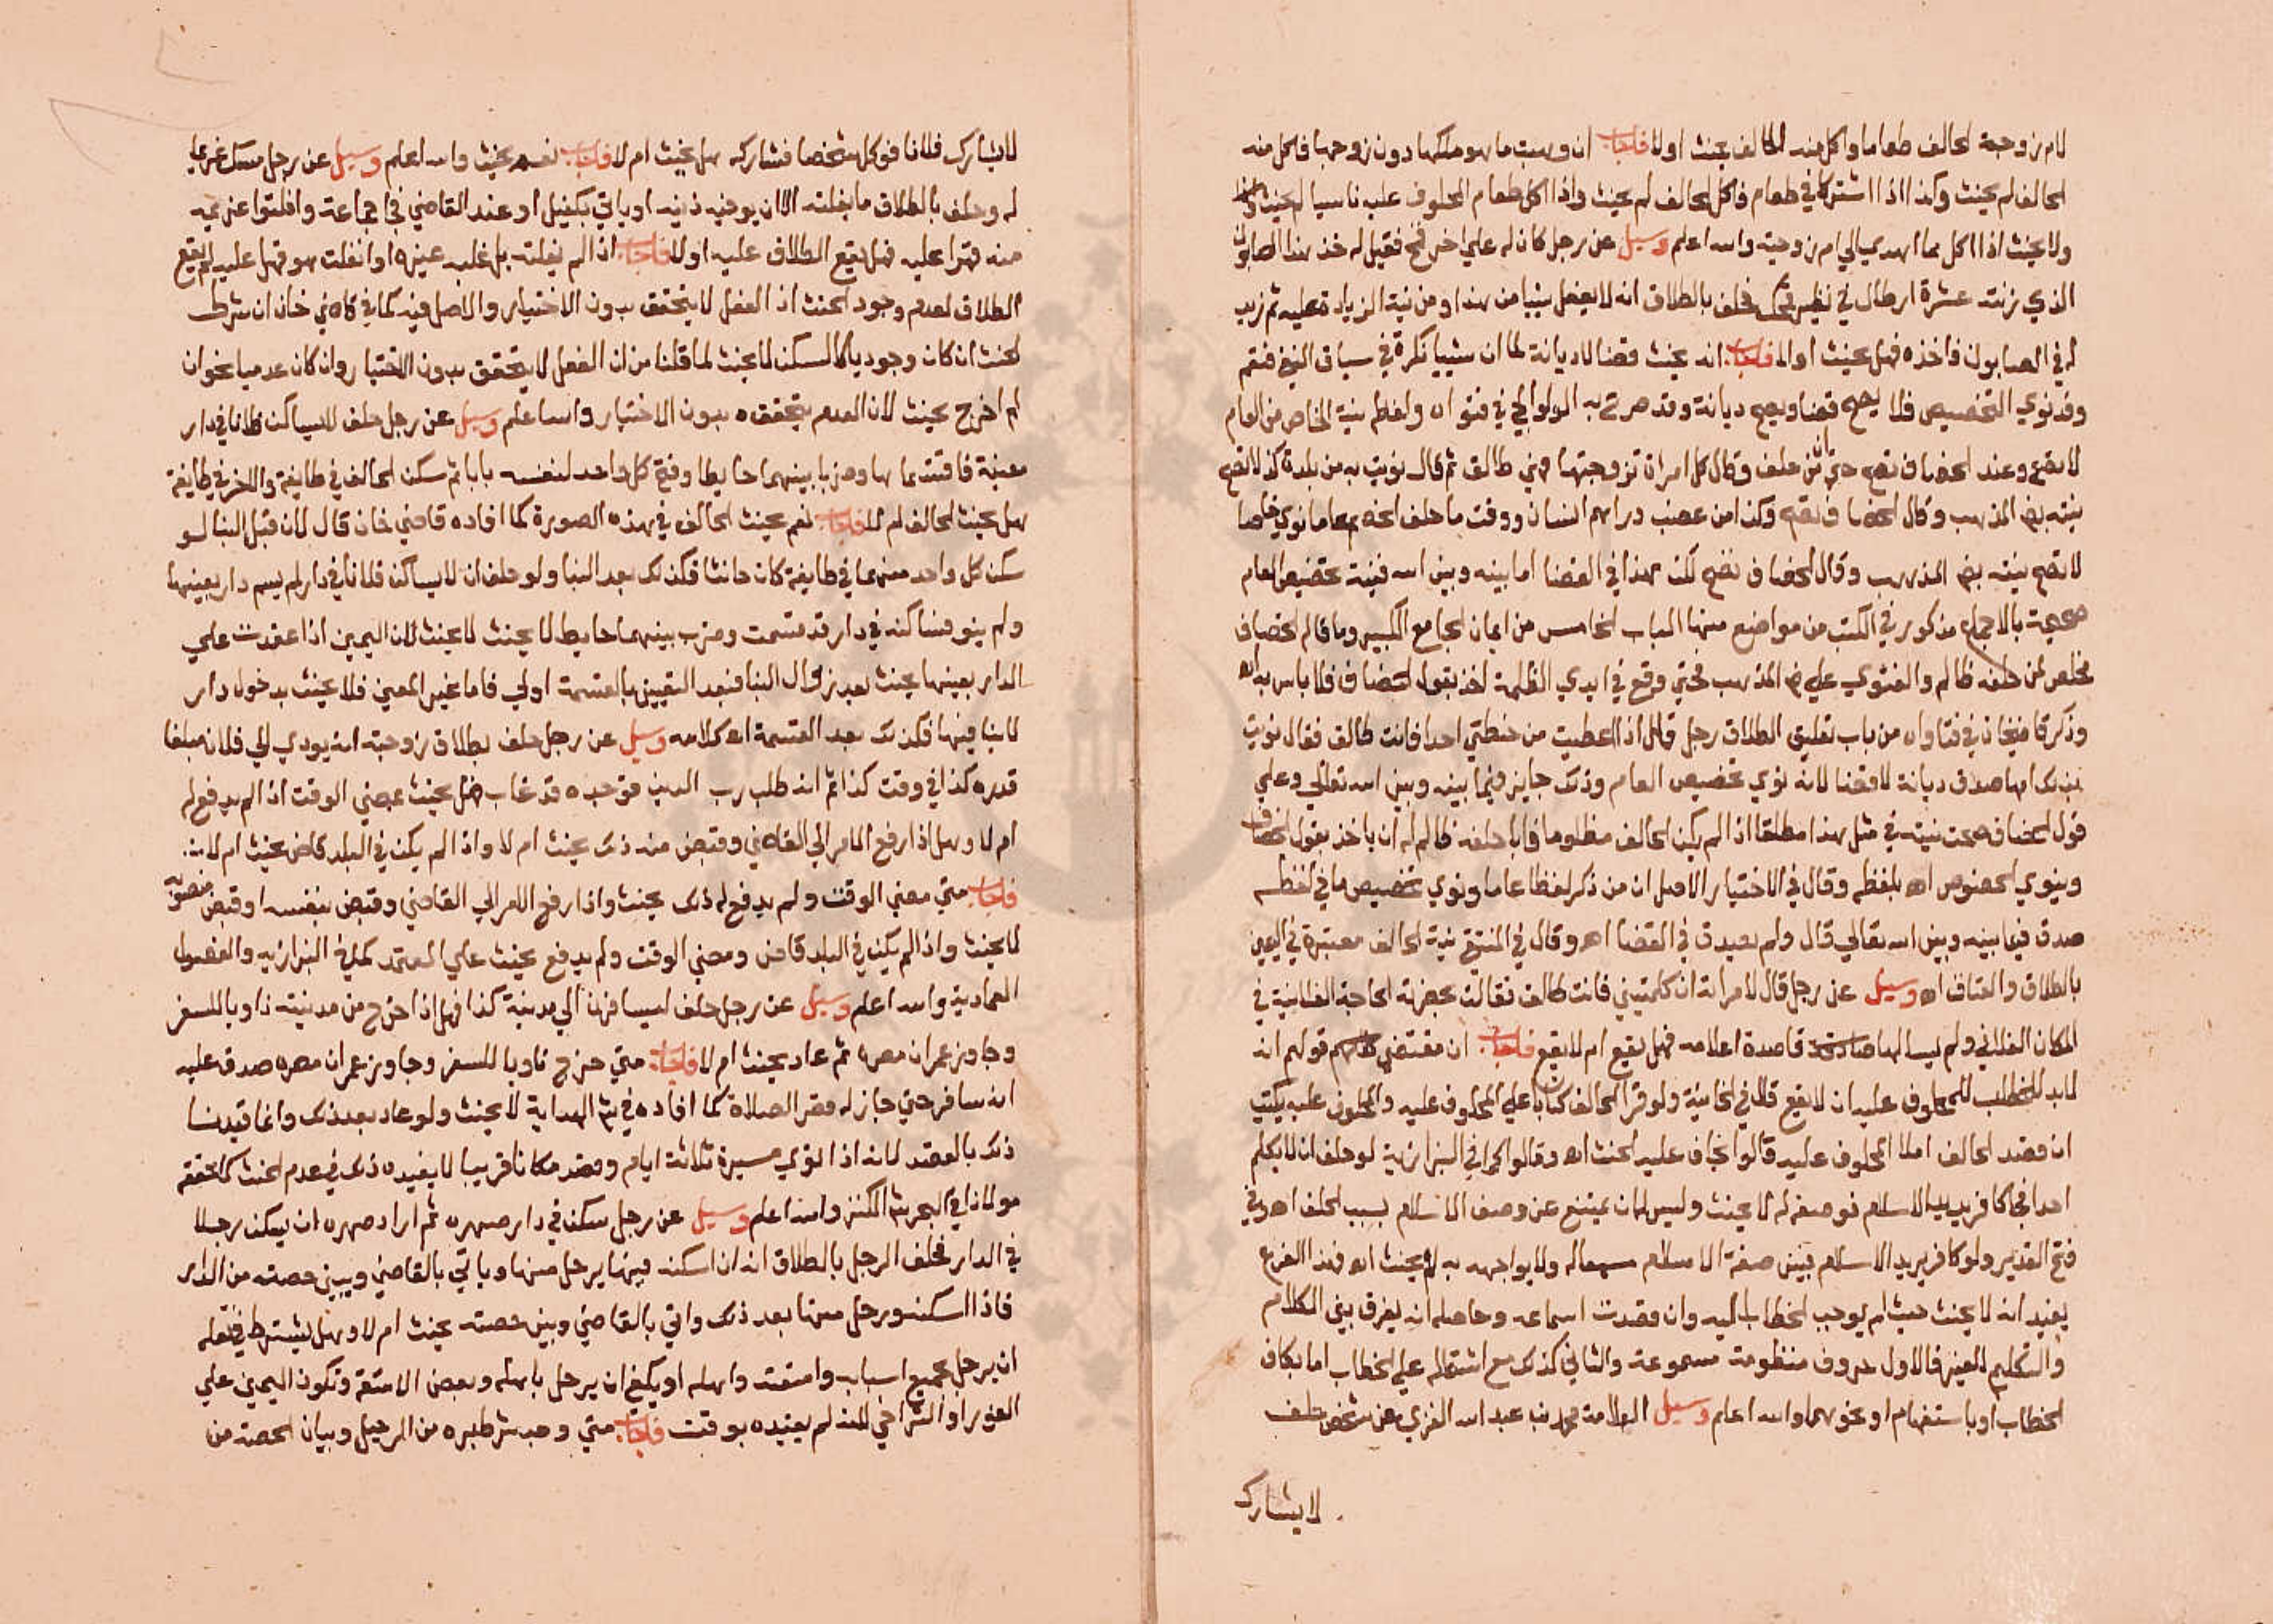 لام زوجة الحالف طعاما واكل منه الحالف يحنث اولا فاجاب ان وهبت ما هو ملكها دون زوجها فاكل منه
الحالف لم يحنث وكذا اذا اشتركا في طعام فاكل الحالف لم يحنث واذا اكل طعام المحلوف عليه ناسيا لم يحنث
ولا يحنث اذا اكل مما اهدي الي ام زوجته والله اعلم وسيل عن رجل كان له علي اخر قمح فقيل له خذ هذا الصابون
الذي زنته عشرة ارطال في نظير قمحك فحلف بالطلاق انه لا يفعل شيا من هذا ومن نية الزيادة عليه ثم زيد
له في الصابون فاخذه فهل يحنث اولا فاجاب انه يحنث قضا لا ديانة لما ان شييا نكرة في سياق النفي فتعم
وقد نوي التخصيص فلا يصح قضا ويصح ديانة وقد صرح به الولوالجي في فتواه ولفظه نية الخاص من العام
لا تصح وعند الخصاف تصح حتي ان من حلف وقال كل امراة تزوجتها فهي طالق ثم قال نويت به من بلدة كذا لا تصح
نيته في المذهب وقال الخصاف تصح وكذا من غصب دراهم انسان ووقت ما حلف الخصم عاما نوي خاصا
لا تصح نيته في المذهب وقال الخصاف تصح لكن هذا في القضا اما بينه وبين الله فنية تخصيص العام
صحيحة بالاجماع مذكور في الكتب من مواضع منها الباب الخامس من ايمان الجامع الكبير وما قاله الخصاف
مخلص لمن حلفه ظالم والفتوي علي المذهب فمتي وقع في ايدي الظلمة اخذ بقول الخصاف فلا باس به اه
وذكر قاضيخان في فتاواه من باب تعليق الطلاق رجل قال اذا اعطيت من حنطتي احدا فانت طالق فقال نويت
بذلك امها صدق ديانة لا قضا لانه نوي تخصيص العام وذلك جايز فيما بينه وبين الله تعالي وعلي
قول الخصاف صحت نيته في مثل هذا مطلقا اذا لم يكن الحالف مظلوما فاما حلفه ظالم له ان ياخذ بقول الخصاف
وينوي الخصوص اه بلفظه وقال في الاختيار الاصل ان من ذكر لفظا عاما ونوي تخصيص ما في لفظه
صدق فيما بينه وبين الله تعالي قال ولم يصدق في القضا اه وقال في المنتقي نية الحالف معتبرة في اليمين
بالطلاق والعتاق اه وسيل عن رجل قال لامراته ان كلمتيني فانت طالق فقالت بحضرته الحاجة الفلانية في
المكان الفلاني ولم يسالها قاصدة اعلامه فهل يقع ام لا يقع فاجاب ان مقتضي قولهم انه
لابد للخطاب للمحلوف عليه ان لا يقع قال في الخانية ولو قرا الحالف كتابا علي المحلوف عليه والمحلوف عليه يكتب
ان قصد الحالف املا المحلوف عليه قالوا يخاف عليه الحنث اه وقالوا كما في البزازية لو حلف ان لا يكلم
احدا فجا كافر يريد الاسلام فوصفه له لا يحنث وليس له ان يمتنع عن وصف الاسلام بسبب الحلف اه وفي
فتح القدير ولو كافر يريد الاسلام فبين صفة الاسلام مسمعا له ولا يواجهه به لم يحنث اه فهذا الفرع
يفيد انه لا يحنث حيث لم يوجب الخطاب اليه وان قصدت اسماعه وحاصله انه يفرق بين الكلام
والتكليم لغيره فالاول حروف منظومة مسموعة والثاني كذلك مع اشتماله علي الخطاب اما بكاف
الخطاب او باستفهام او نحوهما والله اعلم وسيل العلامة محمد بن عبد الله الغزي عن شخص حلف
لا يشارك
لا يشارك فلانا فوكل شخصا فشاركه هل يحنث ام لا فاجاب نعم يحنث والله اعلم وسيل عن رجل مسك غريما
له وحلف بالطلاق ما يفلته الا ان يوفيه دينه او ياتي بكفيل او عند القاضي فجا جماعة وافلتوا غريمه
منه قهرا عليه فهل يقع الطلاق عليه اولا فاجاب اذا لم يفلته بل غلبه غيره او انفلت هو قهرا عليه لم يقع
الطلاق لعدم وجود الحنث اذ الفعل لا يتحقق بدون الاختيار والاصل فيه كما في قاضي خان ان شرط
الحنث ان كان وجوديا كالسكن لا يحنث لما قلنا من ان الفعل لا يتحقق بدون الاختيار وان كان عدميا نحو ان
لم اخرج يحنث لان العدم يتحقق بدون الاختيار والله اعلم وسيل عن رجل حلف لا يساكن فلانا في دار
معينة فاقتسماها وضربا بينهما حايطا وفتح كل واحد لنفسه بابا ثم سكن الحالف في طايفة والاخر في طايفة
هل يحنث الحالف ام لا فاجاب نعم يحنث الحالف في هذه الصورة كما افاده قاضي خان قال لان قبل البنا لو
سكن كل واحد منهما في طايفة كان حانثا فكذلك بعد البنا ولو حلف ان لا يساكن فلانا في دار لم يسم دار بعينها
ولم ينو فساكنه في دار قد قسمت وضرب بينهما حايط لا يحنث لان اليمين اذا عقدت علي
الدار بعينها يحنث بعد زوال البنا فبعد التعيين بالقسمة اولي فاما غير المعين فلا يحنث بدخول دار
لا بنا فيها فكذلك بعد القسمة اه كلامه وسيل عن رجل حلف بطلاق زوجته انه يودي الي فلان مبلغا
قدره كذا في وقت كذا ثم انه طلب رب الدين فوجده قد غاب فهل يحنث بمضي الوقت اذا لم يدفع له
ام لا وهل اذا رفع الامر الي القاضي وقبض منه ذلك يحنث ام لا واذا لم يكن في البلد قاض يحنث ام لا
فاجاب متي مضي الوقت ولم يدفع له ذلك يحنث واذا رفع الامر الي القاضي وقبض بنفسه او قبض منصوبه
لا يحنث واذا لم يكن في البلد قاض ومضي الوقت ولم يدفع يحنث علي المعتمد كما في البزازية والفصول
العمادية والله اعلم وسيل عن رجل حلف ليسافرن الي مدينة كذا فهل اذا خرج من مدينته ناويا للسفر
وجاوز عمران مصره ثم عاد يحنث ام لا فاجاب متي خرج ناويا للسفر وجاوز عمران مصره صدق عليه
انه سافر حتي جاز له قصر الصلاة كما افاده في الهداية لا يحنث ولو عاد بعد ذلك وانما قيدنا
ذلك بالقصد لانه اذا نوي مسيرة ثلاثة ايام وقصد مكانا قريبا لا يفيده ذلك في عدم الحنث كما حققه
مولانا في البحر شرح الكنز والله اعلم وسيل عن رجل سكن في دار صهره ثم اراد صهره ان يسكن رجلا
في الدار فحلف الرجل بالطلاق انه ان اسكنه فيها يرحل منها وياتي بالقاضي ويبين حصته من الدار
فاذا اسكنه ورحل منها بعد ذلك واتي بالقاضي وبين حصته يحنث ام لا وهل يشترط في نقله
ان يرحل بجميع اسبابه وامتعته واهله او يكفي ان يرحل باهله وبعض الامتعة وتكون اليمين علي
الفور او التراخي لانه لم يقيده بوقت فاجاب متي وجد شرط بره من الرحيل وبيان الحصة من